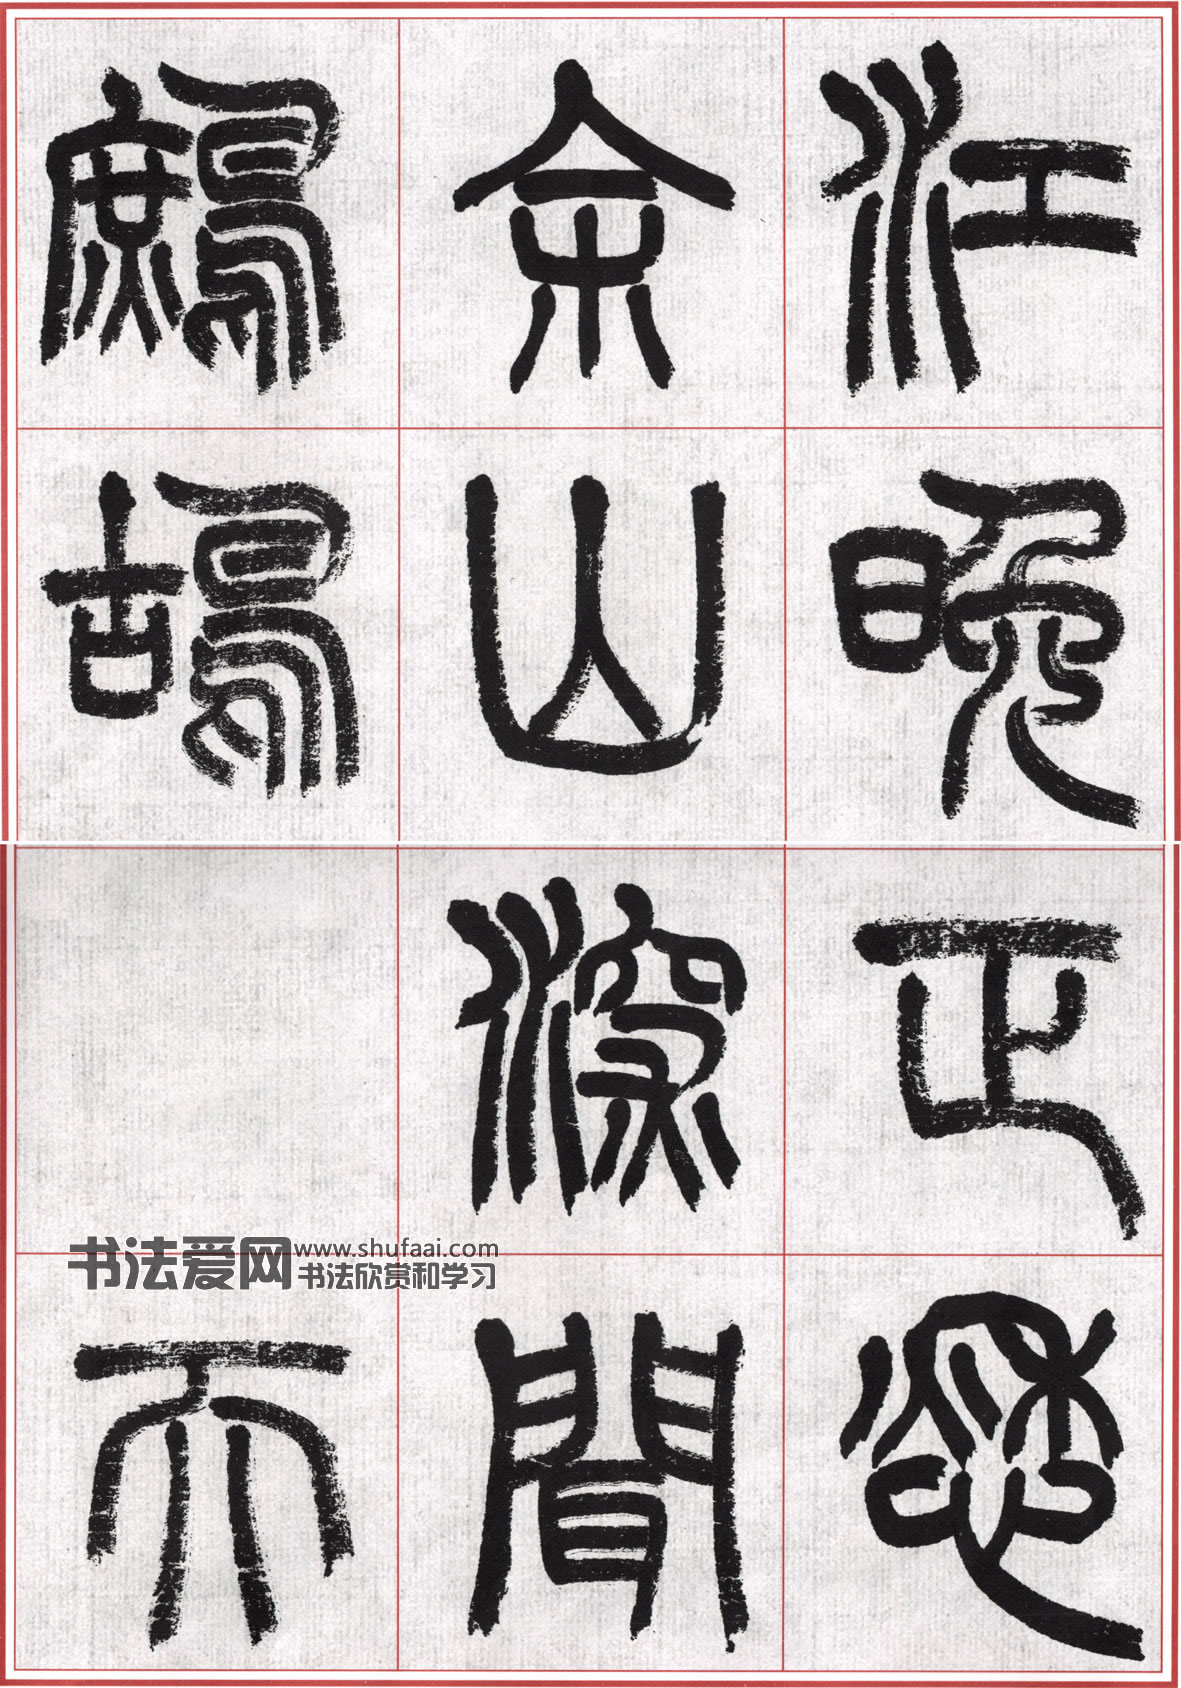 江晚正愁
余山深聞
鷓鴣
而
书法爱网
www.shufaai.com
书法欣赏和学习